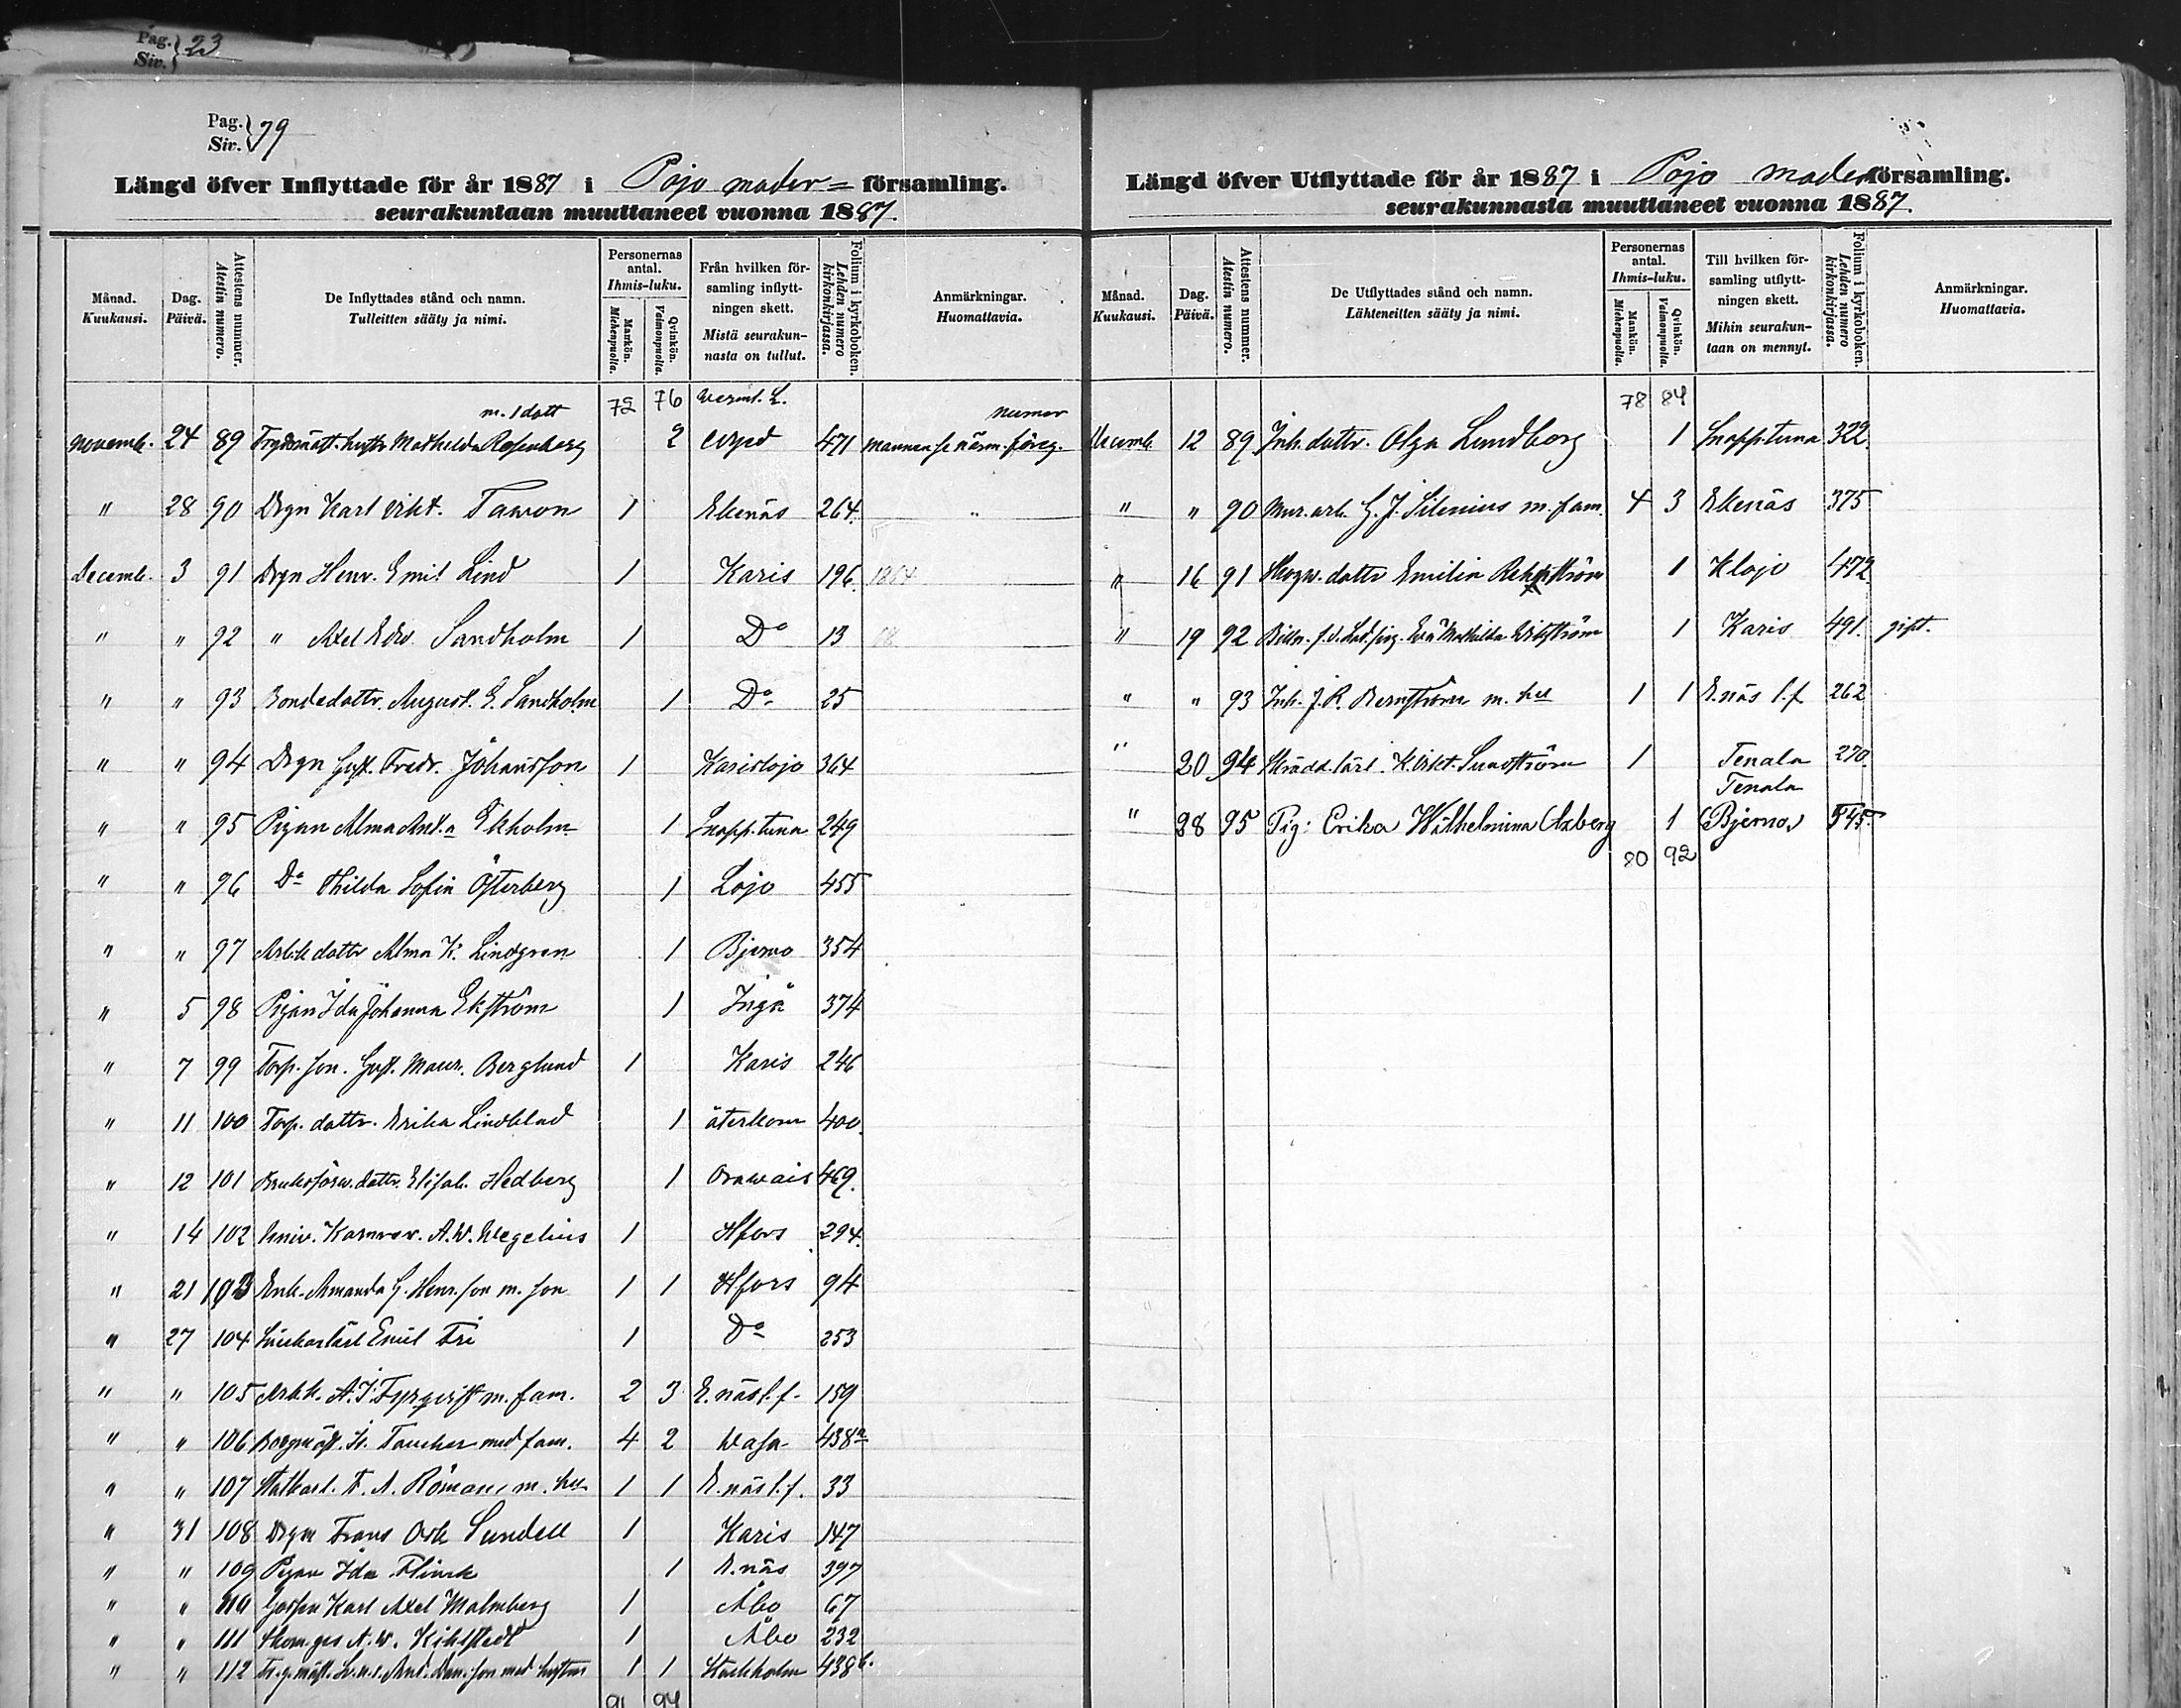 Pag. Siv. } 23
Pag. Siv. } 79
Längd öfver Inflyttade för år 1887 i Pojo moder= församling.
seurakuntaan muuttaneet vuonna 1887.
Månad. Kuukausi.
Dag. Päivä.
Attestens nummer. Atestin numero.
De Inflyttades stånd och namn. Tulleitten sääty ja nimi.
Personernas antal. Ihmis-luku.
Mankön. Miehenpuolia.
Qvinkön. Vaimonpuolia.
Från hvilken församling inflyttningen skett. Mistä seurakunnasta on tullut.
Folium i kyrkoboken. Lehden numero kirkonkirjassa.
Anmärkningar. Huomattavia.
m. 1 dott 72 76 numer
Novemb. 24 89 Mathilda Rosenberg 2 471 föreg.
" 28 90 Drgn Karl Vikt. Tawon 1 Ekenäs 264.
Decemb. 3 91 Drgn Henr. Emil Lind 1 Karis 196. 1864
" " 92 " Axel Edw. Sandholm 1 Do 13
" " 93 Bondedottr. August. E. Sandholm 1 Do 25
" " 94 Drgn Gust. Fredr. Johansson 1 Karislojo 364
" " 95 Pigan Alma Ekholm 1 Snapp.tuna 249
" " 96 Do Hilda Sofia Österberg 1 Lojo 455
" " 97 Arb.k dottr Alma K. Lindgren 1 Bjerno 354
" 5 98 Pigan Ida Johanna Ekström 1 Ingå 374
" 7 99 Torp. son. Gust. Maur. Berglund 1 Karis 246
" 11 100 Torp. dottr. Erika Lindblad 1 återkom 400.
" 12 101 Bruksförw. dottr. Elisab. Hedberg 1 Orawais 469.
" 14 102 Univ. Kamrer. A. W. Wegelius 1 Hfors 294.
" 21 103 Enk. Amanda G. Henr.son m. son 1 1 Hfors 94
" 27 104 Emil Fri 1 Do 253
" " 105 Arbk. A. J. Fyrqvist m. fam. 2 3 E.näs l.f. 159
" " 106 Taucher med fam. 4 2 Wasa 438a
" " 107 Statkarl. F. A. Roman m. hu 1 1 E.näs l.f. 33
" 31 108 Drgn Frans Osk. Sundell 1 Karis 147
" " 109 Pigan Ida Flinck 1 E.näs 397
" " 110 Gossen Karl Axel Malmberg 1 Åbo 67
" " 111 Skom.ges A. W. Kihlstedt 1 Åbo 232
" " 112 And. Dan.son med hustru 1 1 Stockholm 438b.
91 94
Längd öfver Utflyttade för år 1887 i Pojo moder församling.
seurakunnasta muuttaneet vuonna 1887.
Månad. Kuukausi.
Dag. Päivä.
Attestens nummer. Atestin numero.
De Utflyttades stånd och namn. Lähteneitten sääty ja nimi.
Personernas antal. Ihmis-luku.
Mankön. Miehenpuolia.
Qvinkön. Vaimonpuolia.
Till hvilken församling utflyttningen skett. Mihin seurakuntaan on mennyt.
Folium i kyrkoboken. Lehden numero kirkonkirjassa.
Anmärkningar. Huomattavia.
78 84
Decemb. 12 89 Inh. dottr. Olga Lundborg 1 Snapp.tuna 322.
" " 90 Mur. arb. G. J. Silenius m. fam. 4 3 Ekenäs 375
" 16 91 dottr Emilia 1 Klojo 472.
" 19 92 Eva Mathilda Wikström 1 Karis 491. gift.
" " 93 Inh. J. R. Bernström m. hu 1 1 E.näs l.f 262
" 20 94 Skrädd. lärl. K. Vikt. Sundström 1 Tenala 270.
Tenala
" 28 95 Pig: Erika Wilhelmina Axberg 1 (Bjerno) 545.
80 92